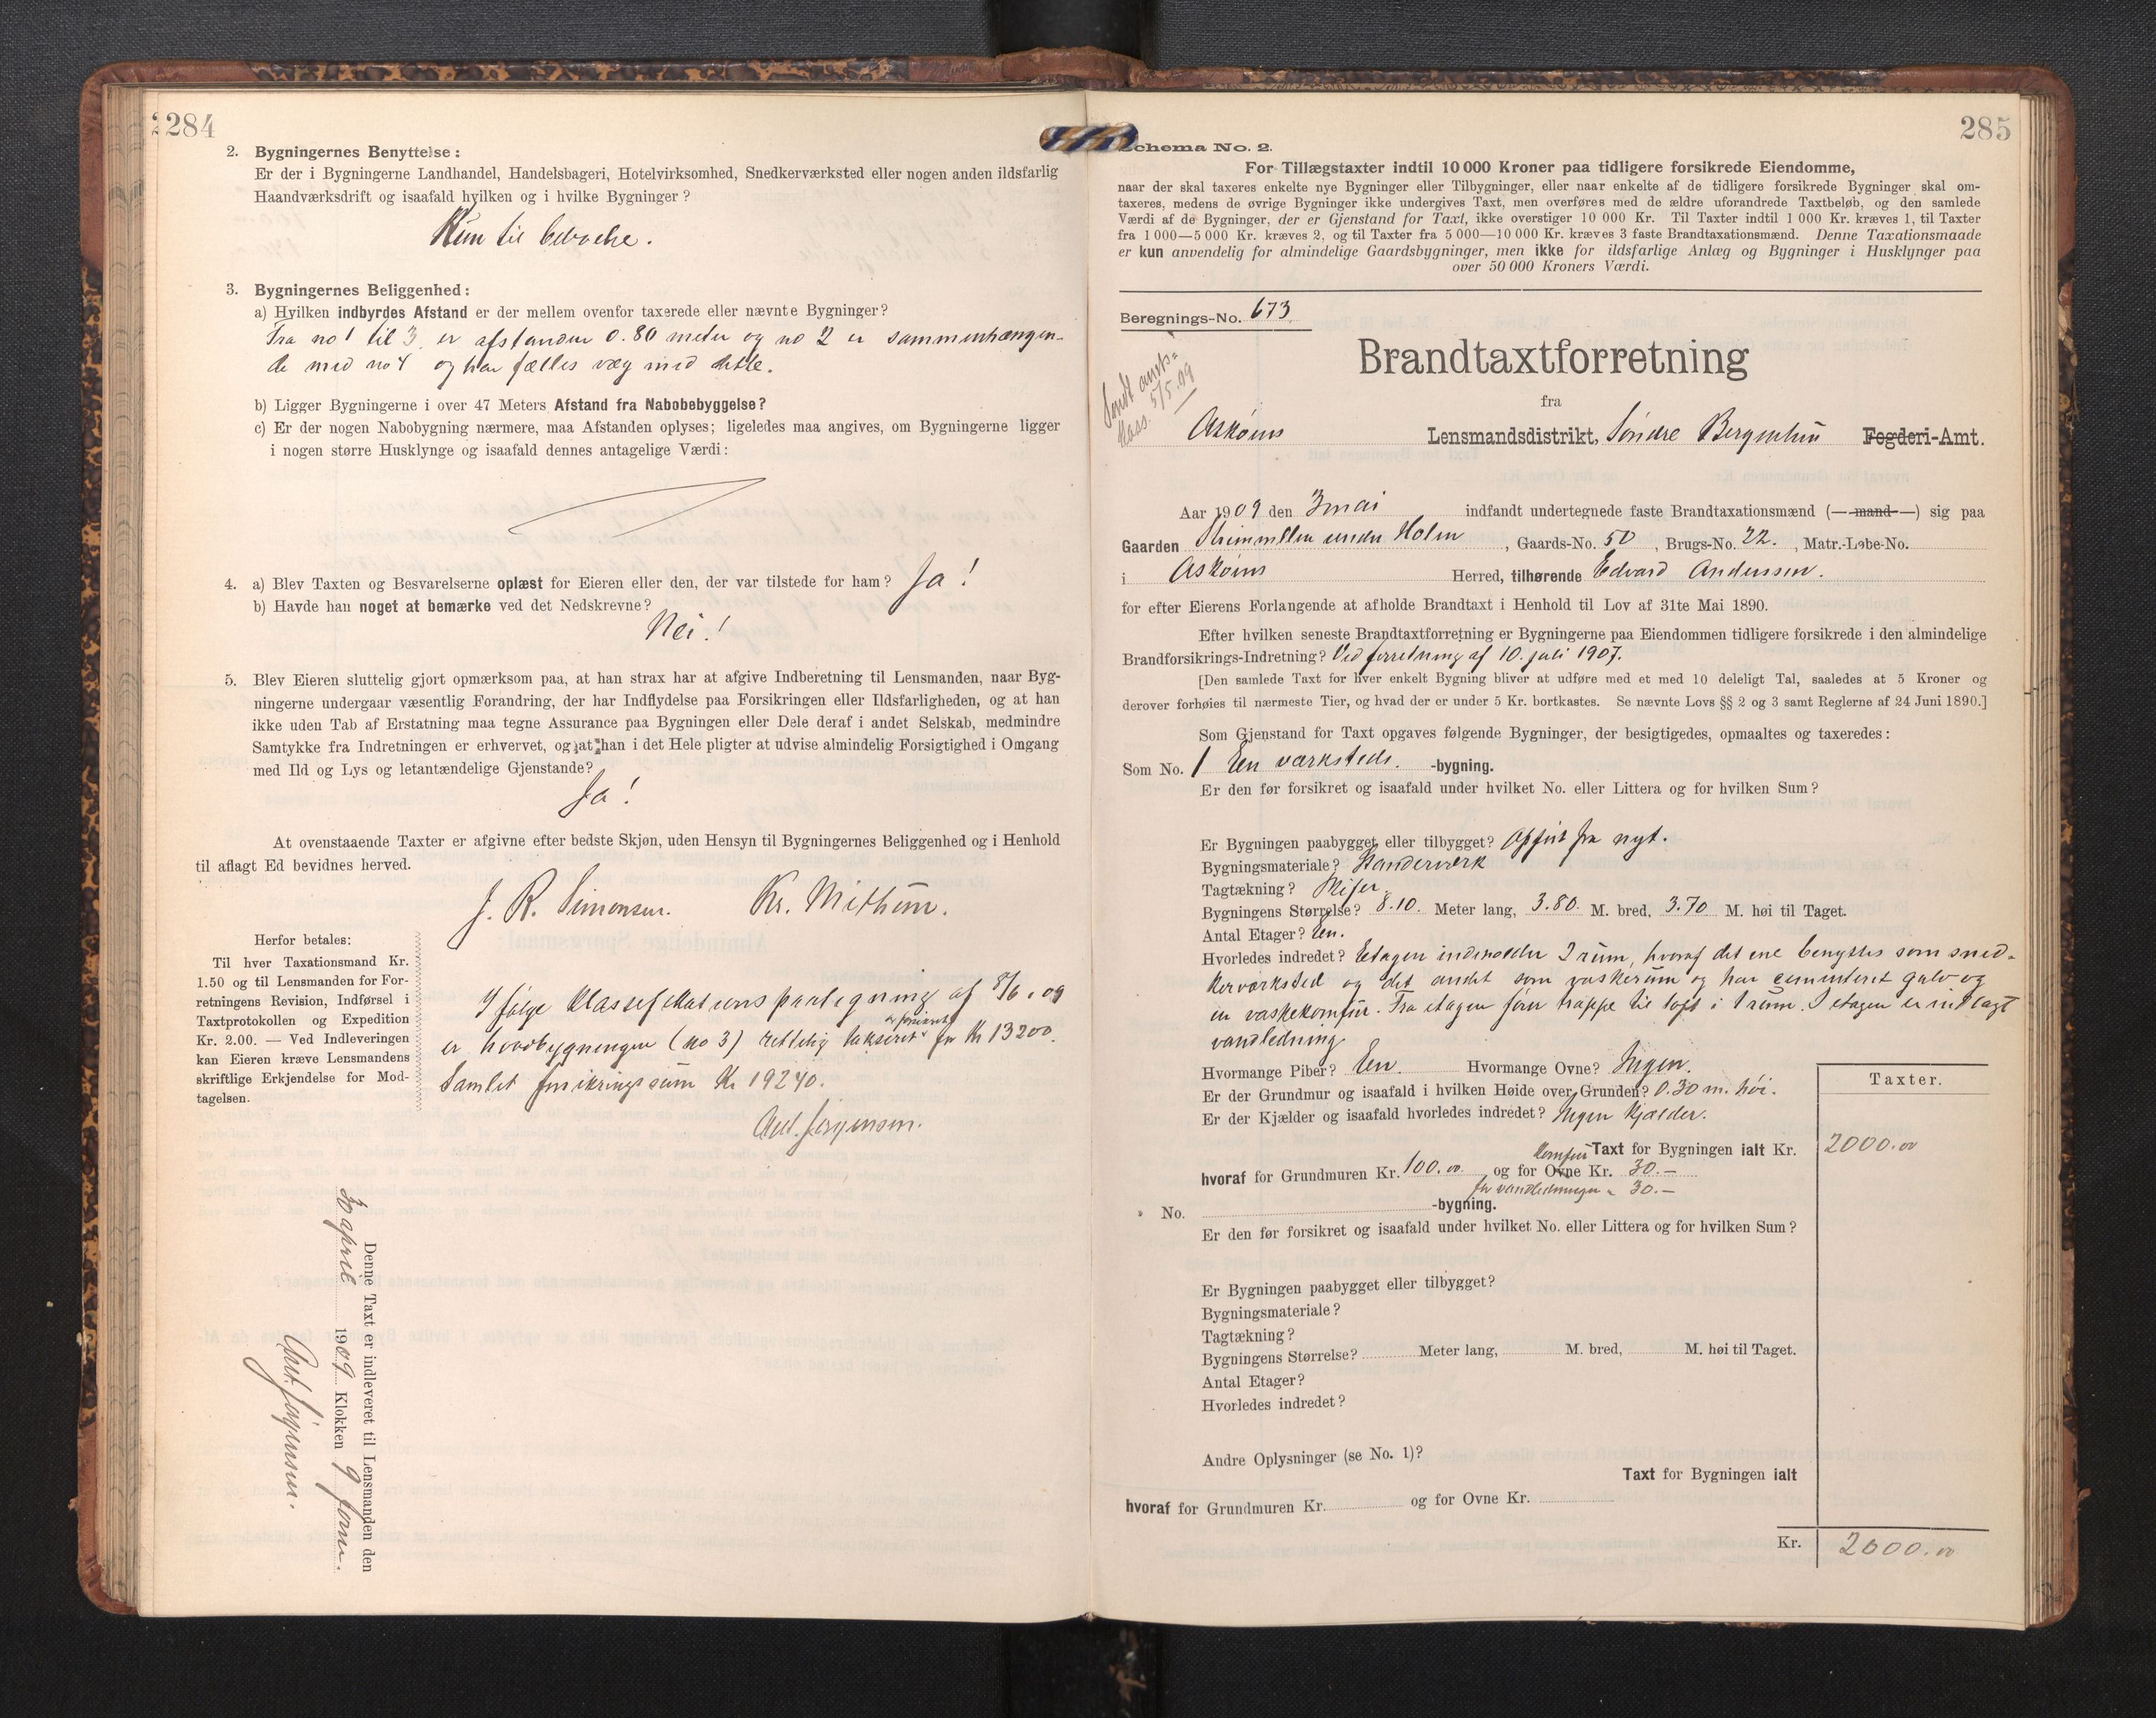 284
2. Bygningernes Benyttelse:
Er der i Bygningerne Landhandel, Handelsbageri, Hotelvirksomhed, Snedkerværksted eller nogen anden ildsfarlig
Haandværksdrift og isaafald hvilken og i hvilke Bygninger?
Kun til beboelse.
3. Bygningernes Beliggenhed:
a) Hvilken indbyrdes Afstand er der mellem ovenfor taxerede eller nævnte Bygninger?
Fra no 1 til 3 er afstanden 0.80 meter og no 2 er sammenhængen-
de med no 4 og har fælles væg med dette.
b) Ligger Bygningerne i over 47 Meters Afstand fra Nabobebyggelse?
c) Er der nogen Nabobygning nærmere, maa Afstanden oplyses; ligeledes maa angives, om Bygningerne ligger
i nogen større Husklynge og isaafald dennes antagelige Værdi:
4. a) Blev Taxten og Besvarelserne oplæst for Eieren eller den, der var tilstede for ham? Ja!
b) Havde han noget at bemærke ved det Nedskrevne?
Nei!
5. Blev Eieren sluttelig gjort opmærksom paa, at han strax har at afgive Indberetning til Lensmanden, naar Byg-
ningerne undergaar væsentlig Forandring, der har Indflydelse paa Forsikringen eller Ildsfarligheden, og at han
ikke uden Tab af Erstatning maa tegne Assurance paa Bygningen eller Dele deraf i andet Selskab, medmindre
Samtykke fra Indretningen er erhvervet, og at han i det Hele pligter at udvise almindelig Forsigtighed i Omgang
med Ild og Lys og letantændelige Gjenstande?
Ja!
At ovenstaaende Taxter er afgivne efter bedste Skjøn, uden Hensyn til Bygningernes Beliggenhed og i Henhold
til aflagt Ed bevidnes herved.
J. R. Simonsen. Kr. Mithun.
Herfor betales:
Til hver Taxationsmand Kr.
1.50 og til Lensmanden for For-
retningens Revision, Indførsel i
Taxtprotokollen og Expedition
Kr. 2.00. — Ved Indleveringen
kan Eieren kræve Lensmandens
skriftlige Erkjendelse for Mod-
tagelsen.
Ifølge klassefikationspaategning af 8/6.09
er hovedbygningen (no 3) rettelig takseret og forsikret for Kr 13200.
Samlet forsikringssum Kr 19240.
And. Jørgensen.
Denne Taxt er indleveret til Lensmanden den
30 april 1909 Klokken 9 form.
And. Jørgensen.
285
Schema No. 2.
For Tillægstaxter indtil 10 000 Kroner paa tidligere forsikrede Eiendomme,
naar der skal taxeres enkelte nye Bygninger eller Tilbygninger, eller naar enkelte af de tidligere forsikrede Bygninger skal om-
taxeres, medens de øvrige Bygninger ikke undergives Taxt, men overføres med de ældre uforandrede Taxtbeløb, og den samlede
Værdi af de Bygninger, der er Gjenstand for Taxt, ikke overstiger 10 000 Kr. Til Taxter indtil 1 000 Kr. kræves 1, til Taxter
fra 1 000—5 000 Kr. kræves 2, og til Taxter fra 5 000—10 000 Kr. kræves 3 faste Brandtaxationsmænd. Denne Taxationsmaade
er kun anvendelig for almindelige Gaardsbygninger, men ikke for ildsfarlige Anlæg og Bygninger i Husklynger paa
over 50 000 Kroners Værdi.
Beregnings-No. 673.
Brandtaxtforretning
fra
Sendt
5/5.09
Askøens Lensmandsdistrikt, Søndre Bergenhus Fogderi-Amt.
Aar 1909 den 3 mai indfandt undertegnede faste Brandtaxationsmænd (— mand —) sig paa
Gaarden under Holen, Gaards-No. 50, Brugs-No. 22., Matr.-Løbe-No.
i Askøens Herred, tilhørende Edvard Anderssen.
for efter Eierens Forlangende at afholde Brandtaxt i Henhold til Lov af 31te Mai 1890.
Efter hvilken seneste Brandtaxtforretning er Bygningerne paa Eiendommen tidligere forsikrede i den almindelige
Brandforsikrings-Indretning? Ved forretning af 10. juli 1907.
[Den samlede Taxt for hver enkelt Bygning bliver at udføre med et med 10 deleligt Tal, saaledes at 5 Kroner og
derover forhøies til nærmeste Tier, og hvad der er under 5 Kr. bortkastes. Se nævnte Lovs §§ 2 og 3 samt Reglerne af 24 Juni 1890.]
Som Gjenstand for Taxt opgaves følgende Bygninger, der besigtigedes, opmaaltes og taxeredes:
Som No. 1 En værksteds. -bygning.
Er den før forsikret og isaafald under hvilket No. eller Littera og for hvilken Sum?
Er Bygningen paabygget eller tilbygget? Opført fra nyt.
Bygningsmateriale? Standerverk
Tagtækning? Skifer.
Bygningens Størrelse? 8.10. Meter lang, 3.80. M. bred, 3.70 M. høi til Taget.
Antal Etager? En.
Hvorledes indredet? Etagen indeholder 2 rum, hvoraf det ene benyttes som sned-
kerværksted og det andet som vaskerum og har cementeret gulv og
en vaskekomfur. Fra etagen fører trappe til loft i 1 rum. I etagen er indlagt
vandledning
Hvormange Piber? En. Hvormange Ovne? Ingen.
Er der Grundmur og isaafald i hvilken Høide over Grunden? 0.30 m. høi.
Er der Kjælder og isaafald hvorledes indredet? Ingen Kjælder.
Taxter.
Taxt for Bygningen ialt Kr. 2000.00
hvoraf for Grundmuren Kr. 100.00 og for Ovne komfur Kr. 30.—
for vandledningen " 30.—
" No. -bygning.
Er den før forsikret og isaafald under hvilket No. eller Littera og for hvilken Sum?
Er Bygningen paabygget eller tilbygget?
Bygningsmateriale?
Tagtækning?
Bygningens Størrelse? Meter lang, M. bred, M. høi til Taget.
Antal Etager?
Hvorledes indredet?
Andre Oplysninger (se No. 1)?
Taxt for Bygningen ialt
hvoraf for Grundmuren Kr. og for Ovne Kr.
Kr. 2000.00